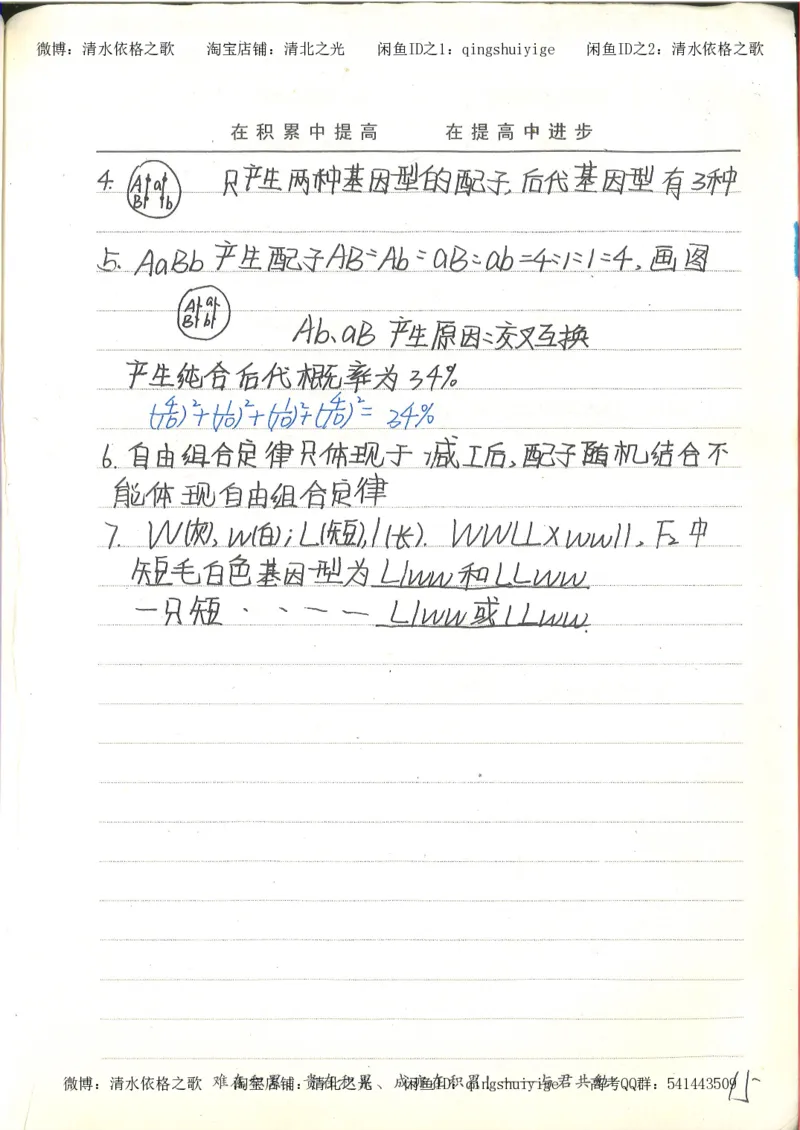 微博：清水依格之歌 淘宝店铺：清北之光 闲鱼ID之1：qingshuiyige 闲鱼ID之2：清水依格之歌
在积累中提高 在提高中进步
4. A a B b 只产生两种基因型的配子，后代基因型有3种
5. AaBb 产生配子AB:Ab:aB:ab=4:1:1:4，画图
A a B b
Ab、aB 产生原因：交叉互换
产生纯合后代概率为34%
(4/10)²+(1/10)²+(1/10)²+(4/10)²=34%
6. 自由组合定律只体现于减I后，配子随机结合不
能体现自由组合定律
7. W(灰)，w(白)；L(短)，l(长). WWLL×wwll，F₂中
短毛白色基因型为Llww和LLww
一只短····一一Llww或LLww.
微博：清水依格之歌 淘宝店铺：清北之光、 闲鱼ID：qingshuiyige 高考QQ群：541443509
15